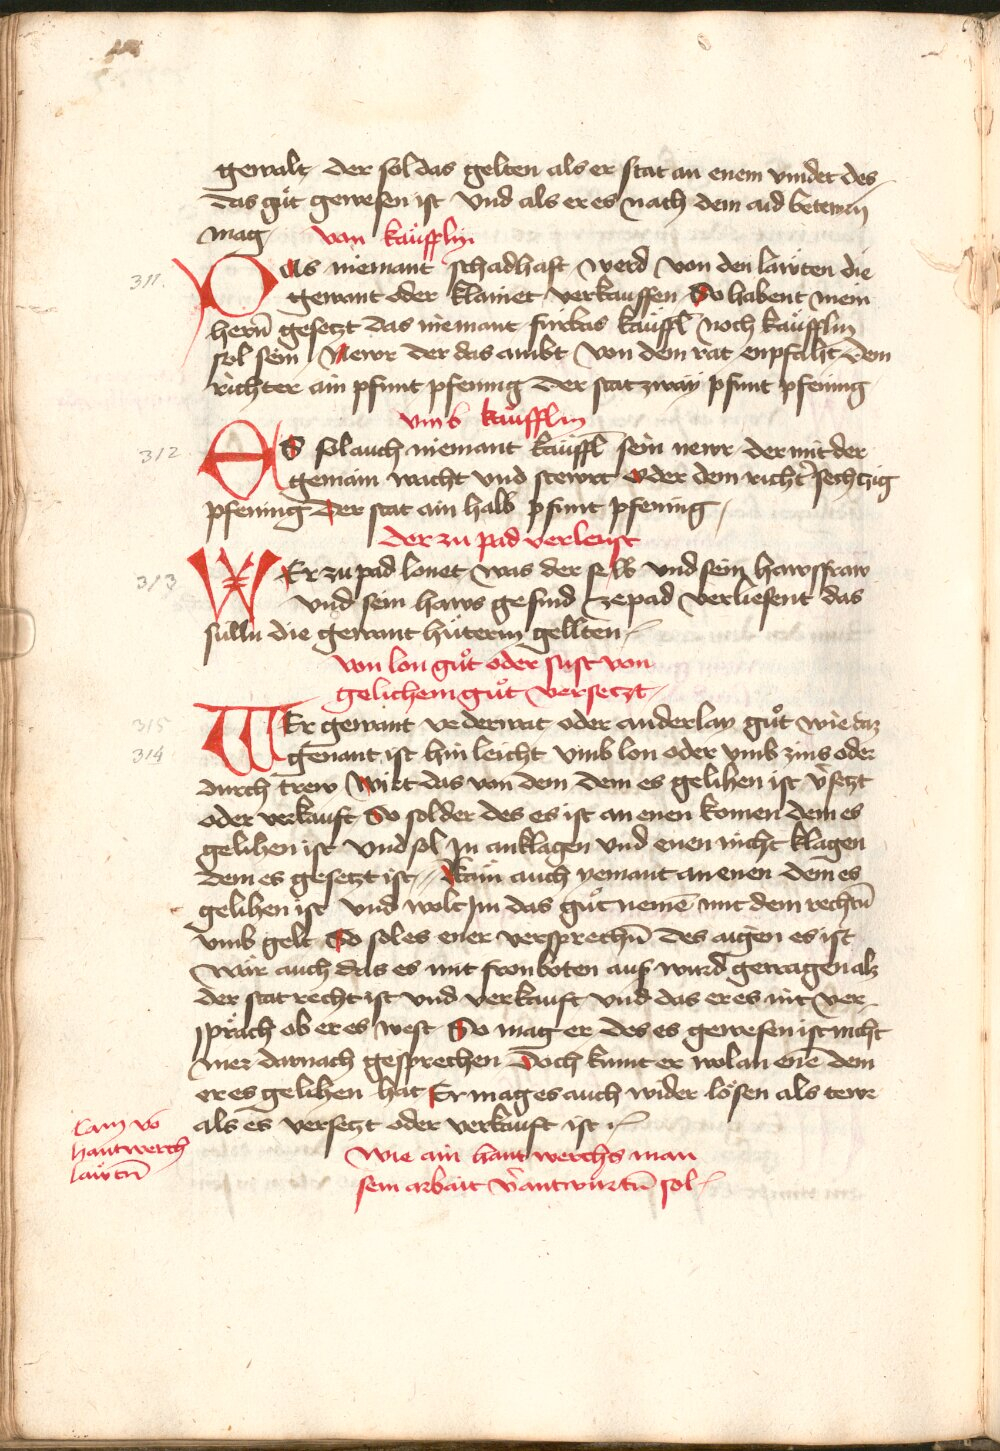 gewalt der sol das gelten als er stat an enem vindet des
das gůt gewesen ist Vnd als er es nach dem aid betewrn
mag
von käwfflin
311. Das niemant schadhaft werd von den läwten die
gewant oder klainet verkauffen So habent mein
herñ gesetzt das niemant fürbas käuffl noch käufflin
sol sein Newr der das ambt von dem rat enpfaht dem
richter ain pfunt pfening der stat zway pfunt pfening
vmb käwfflin
312 ES sol auch niemant käuffl sein newr der mit der
gemain wacht vnd stewrt oder dem richt̉ sechtzig
pfening Der stat ain halb pfunt pfening
der zu pad verleust
313 WEr zu pad lonet was der selb vnd sein hawsfraw
vnd sein haws gesind ze pad verliesent das
sulln die gewant hüterin gellten
von lon gůt oder sust von
gelichem gůt versetzt
315
314 WEr gewant vederwat oder anderlay gůt wie daz
genant ist hin leicht vmb lon oder vmb zins oder
durch trew Wirt das von dem dem es gelihen ist v̉setzt
oder verkauft So sol der des es ist an enen komen dem es
gelihen ist vnd sol Jn anklagen vnd enen nicht klagen
dem es gesetzt ist Käm auch yemant an enen dem es
gelihen ist vnd wolt Jm das gůt nemē mit dem rechtñ
vmb gelt So sol es ener versprechñ des aigen es ist
wär auch das es mit fronboten aus wurd getragen als
der stat recht ist vnd verkauft vnd das er es nit ver
spräch ob er es west So mag er des es gewesen ist nicht
mer darnach gesprechen Doch kumt er wol an enē dem
er es gelihen hat Er mag es auch wider lösen als tewr
als es versetzt oder verkauft ist
vō
hantwerch
läwtñ
wie ain hant werchs man
sein arbait v̉antwürtñ sol